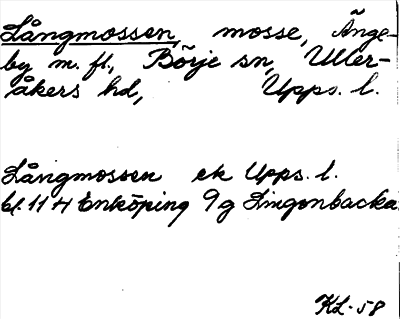 Långmossen, mosse, Änge-
by m. fl., Börje sn, Uller-
åkers hd, Upps. l.
Långmossen ek Upps. l.
bl. 11 H Enköping 9g Lingonbacka
KL-58